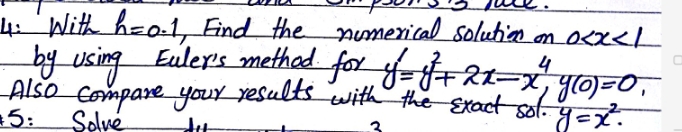 Simpson's rule.
4: With h=0.1, Find the numerical solution on 0<x<1
by using Euler's method for y'=y²+2x-x⁴, y(0)=0.
Also compare your results with the exact sol. y=x².
5: Solve